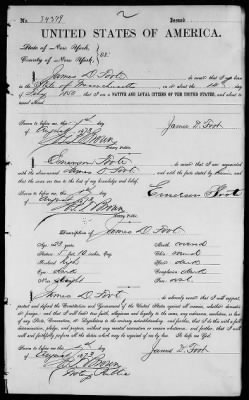 No. 34379
2
Issued
UNITED STATES OF AMERICA.
State of New York,
County of New York, } ss:
I, James D. Foot do swear that I was born
in the State of Massachusetts on or about the 14th day
of July 1850 that I am a NATIVE AND LOYAL CITIZEN OF THE UNITED STATES, and about to
travel abroad.
Sworn to before me this 1st day
of August 1873
James D. Foot
Notary Public
I, Emerson Foote do swear that I am acquainted
with the above-named James D. Foot and with the facts stated by him, and
that the same are true to the best of my knowledge and belief.
Sworn to before me this
of August
Emerson Foot
Brown
Notary Public
Description of James D. Foot
Age 23 years
Mouth
Stature
Chin
Forehead high
Hair dark
Eyes dark
Complexion dark
Nose straight
Face oval
I, James D. Foot do solemnly swear that I will support,
protect and defend the Constitution and Government of the United States against all enemies, whether domestic
or foreign; and that I will bear true faith, allegiance and loyalty to the same, any ordinance, resolution, or law of
any State, Convention or Legislature to the contrary notwithstanding; and further, that I do this with a full
determination, pledge, and purpose, without any mental reservation or evasion whatsoever, and further, that I will
well and faithfully perform all the duties which may be required of me by law. So help me God.
Sworn to before me this 1st day
of August 1873
James D. Foot
Brown
Notary Public